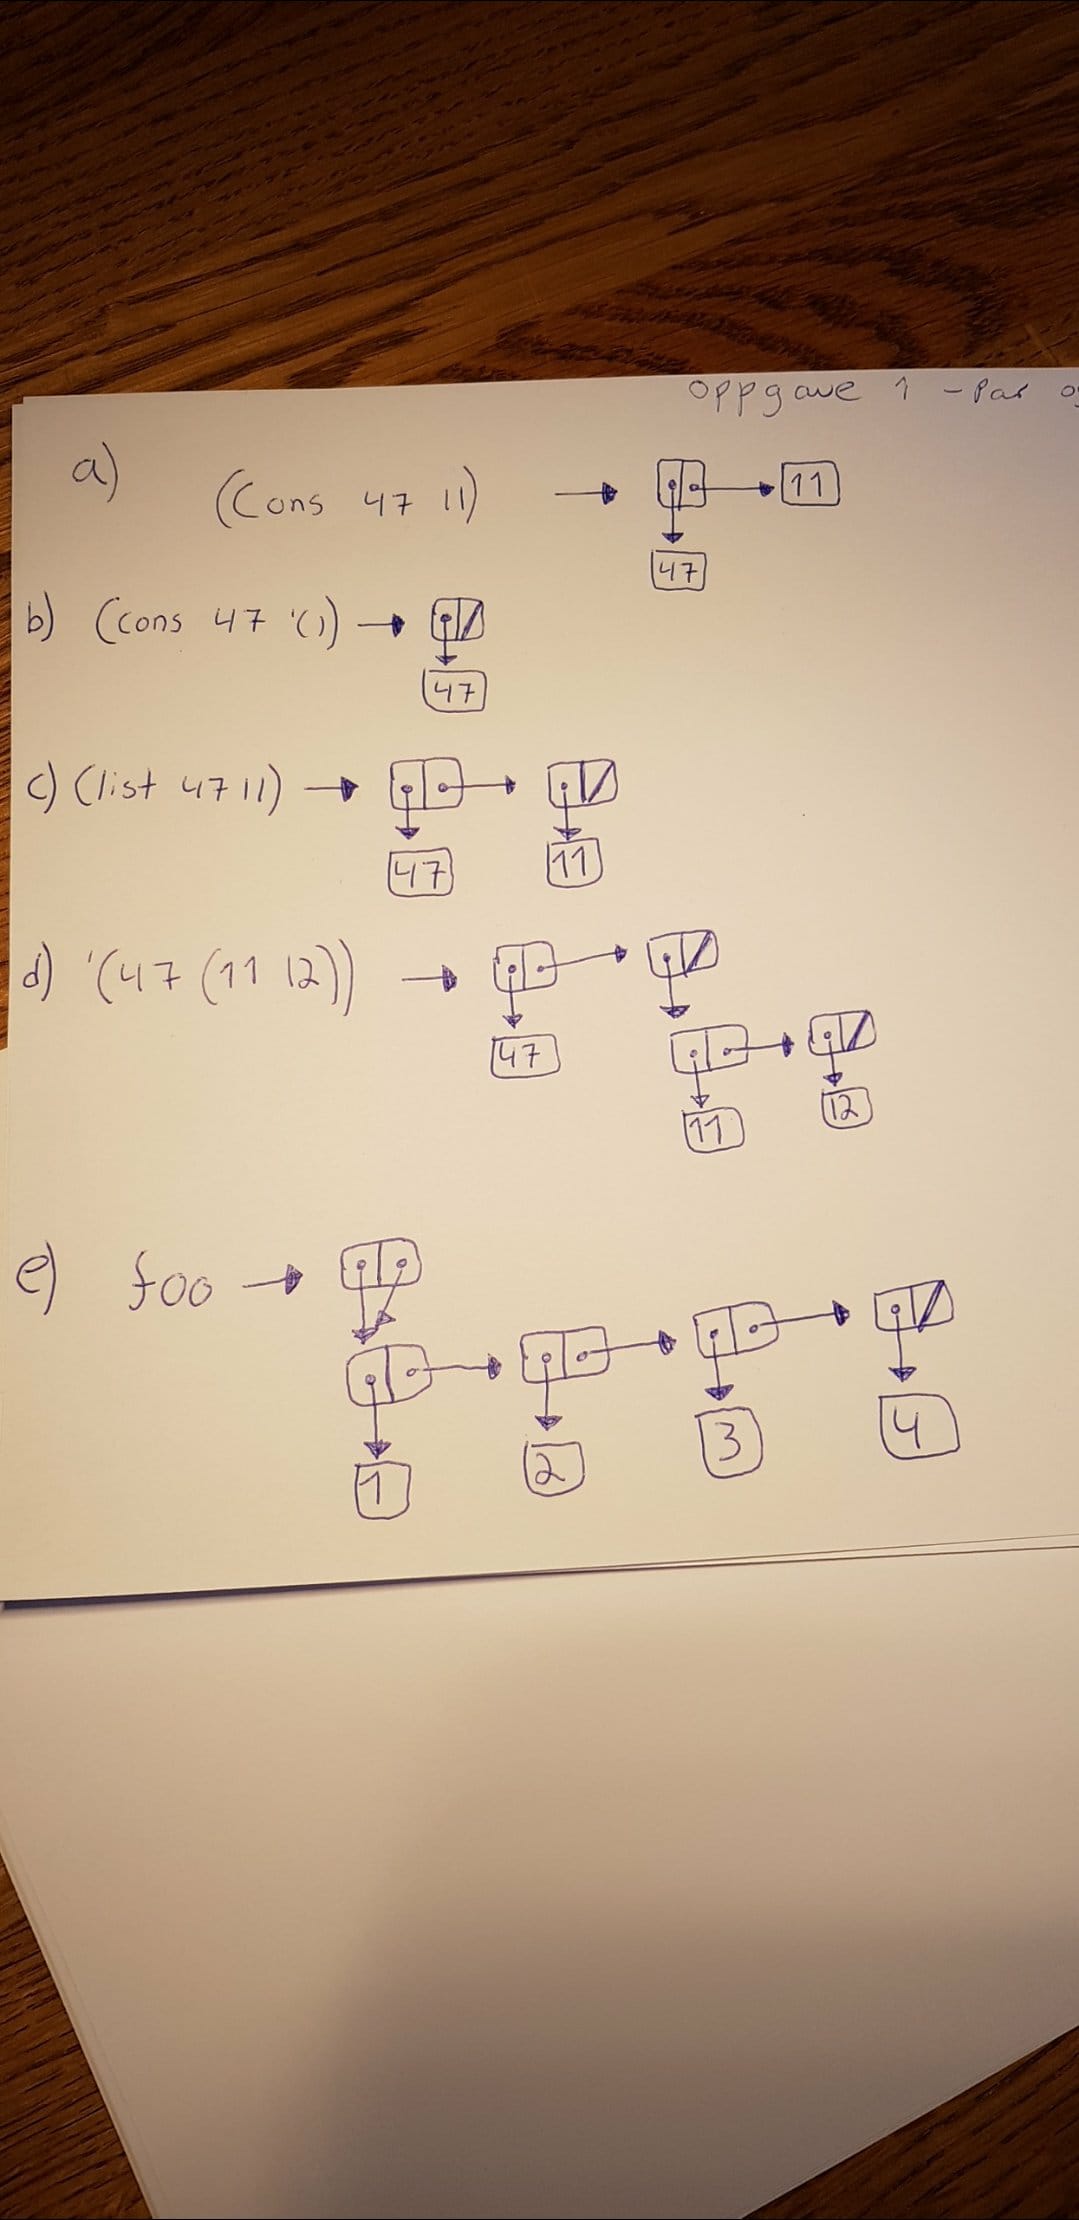 Oppgave 1 - Par
a) (Cons 47 11) → 11
47
b) (cons 47 '()) →
47
c) (list 47 11) →
47 11
d) '(47 (11 12)) →
47
11 12
e) foo →
1 2 3 4